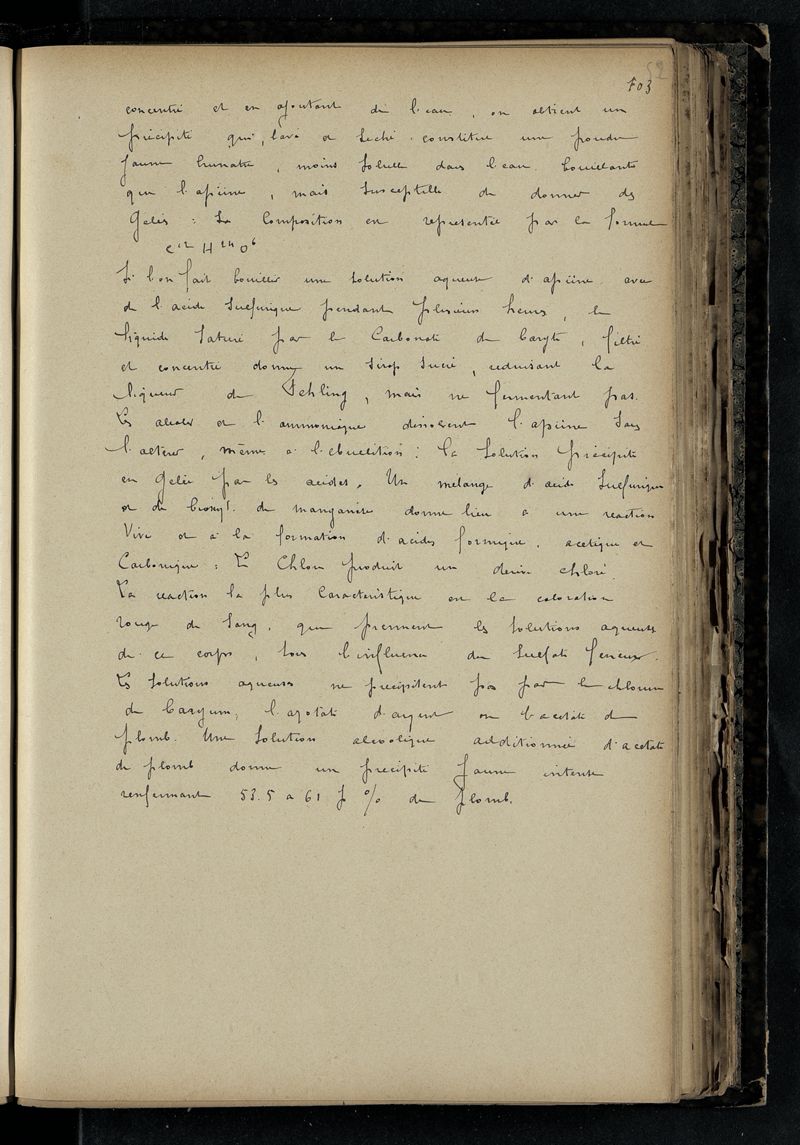 52
703
concentré et en ajoutant de l'eau, on obtient un
précipité qui, lavé et séché constitue une poudre
jaune brunatre, moins soluble dans l'eau bouillante
que l'apiine, mais susceptible de donner des
gelées : Sa composition est représentée par la formule
L'on fait bouillir une solution aqueuse d'apiine avec
de l'acide sulfurique pendant plusieurs heures, le
liquide saturé par le Carbonate de baryte, filtré
et concentré donne un sirop sucré, réduisant la
liqueur de Fehling, mais ne fermentant pas.
Les alcalis et l'ammoniaque dissolvent l'apiine sans
l'altérer, même à l'ébullition : la solution précipite
en gelée par les acides. Un mélange d'acide sulfurique
et de bioxyde de manganèse donne lieu à une réaction
Vive et à la formation d'acides formique, acétique et
Carbonique : Le Chlore produit un dérivé chloré.
La réaction la plus caractéristique est la coloration
rouge de sang, que prennent les solutions aqueuses
de ce corps, sous l'influence du sulfate ferreux.
Les solutions aqueuses ne précipitent pas par le chlorure
de Baryum, l'azotate d'argent ou l'acétate de
plomb. Une solution alcoolique additionnée d'acétate
de plomb donne un précipité jaune intense
renfermant 53.5 à 61 p % de plomb.